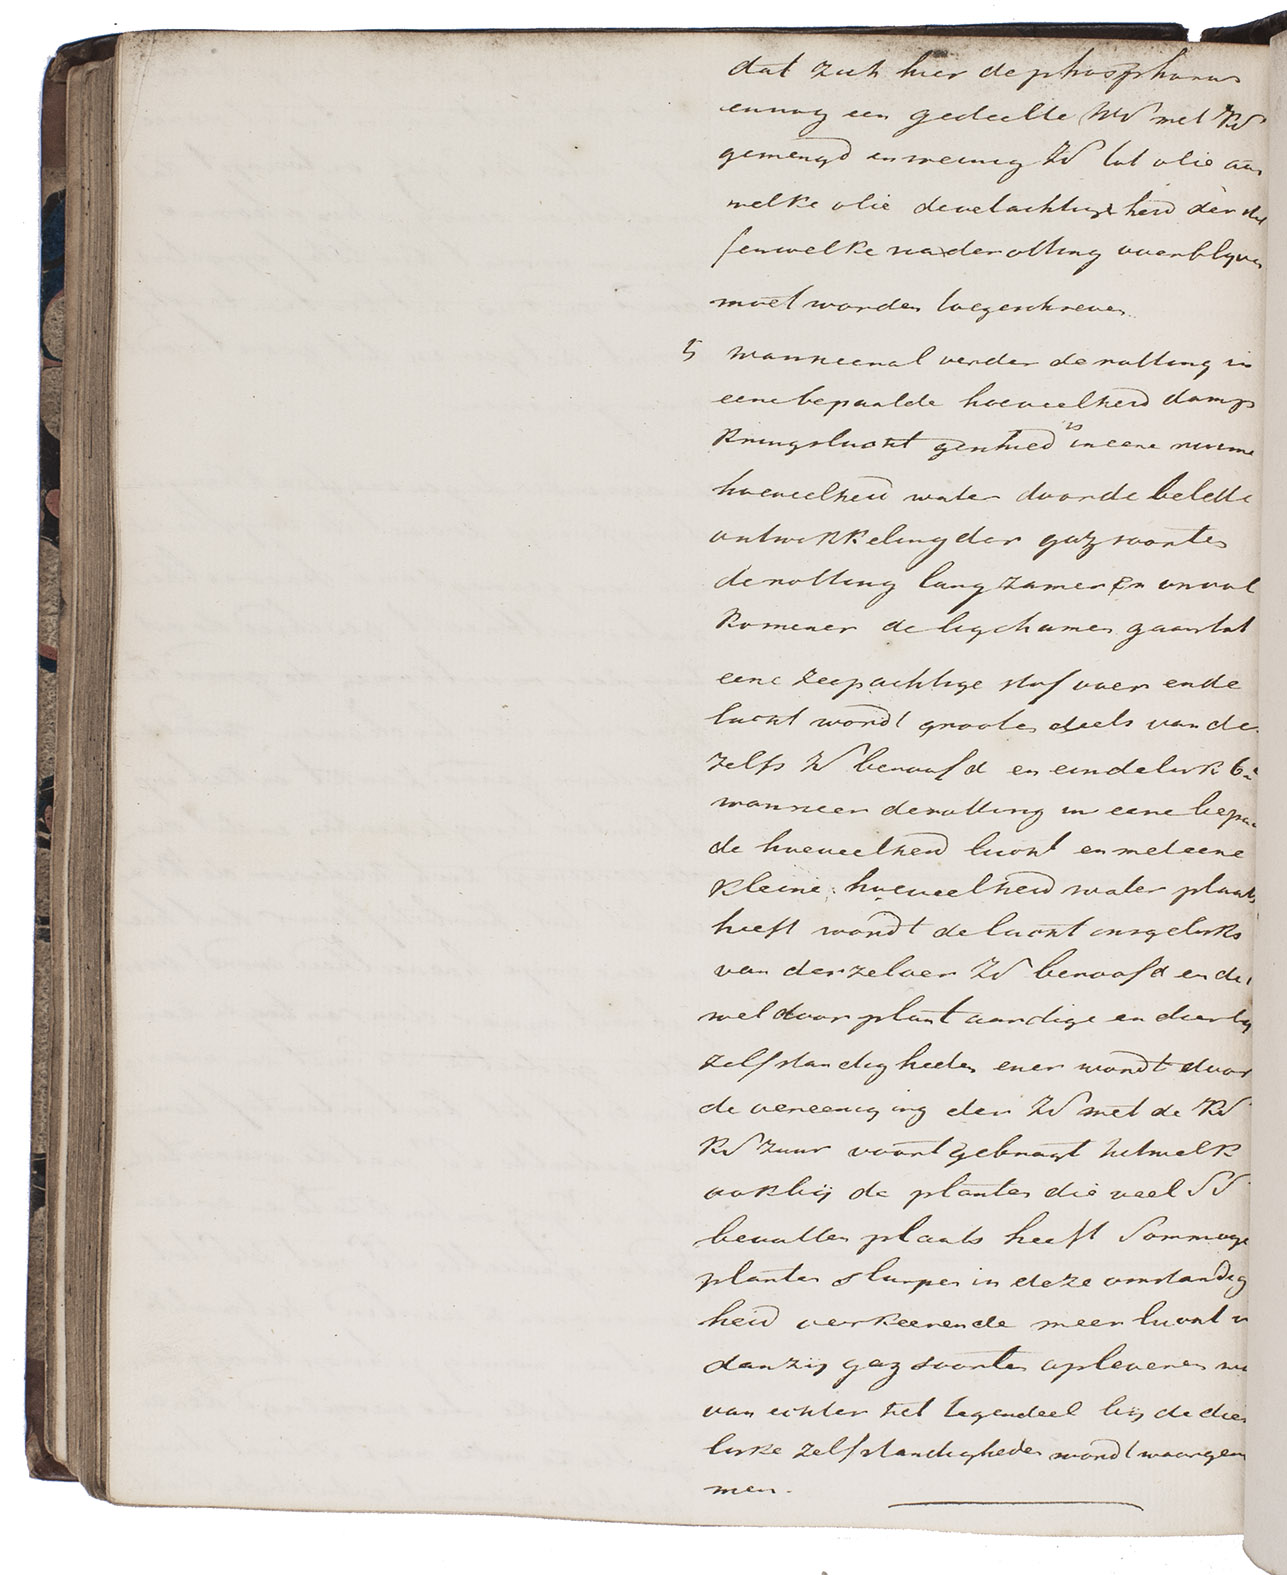 dat zich hier de phosphorus
en nog een gedeelte WS met KS
gemengd en weinig ZS tot olie aan
welke olie de vetachtigheid der stof
fen welke na de rotting overblyven
moet worden toegeschreven
5 Wanneer al verder de rotting in
eene bepaalde hoeveelheid damp
kringslucht geschied is in eene ruime
hoeveelheid water door de belette
ontwikkeling der gaz soorten
de rotting langzamer en onvol
komener de ligchamen gaan tot
eene zeepachtige stof over en de
lucht wordt grooten deels van de
zelfs ZS beroofd en eindelyk 6e
wanneer de rotting in eene bepaa
de hoeveelheid lucht en met eene
kleine hoeveelheid water plaats
heeft wordt de lucht insgelyks
van derzelver ZS beroofd en dit
wel door plant aardige en dierly
zelfstandigheden en er wordt door
de vereeniging der ZS met de KS
KS zuur voortgebragt hetwelk
ook bij de planten die veel SS
bevatten plaats heeft Sommige
planten slurpen in deze omstandig
heid verkeerende meer lucht in
dan zij gaz soorten opleveren
van echter het tegendeel bij de dier
lyke zelfstandigheden wordt waargen
men.